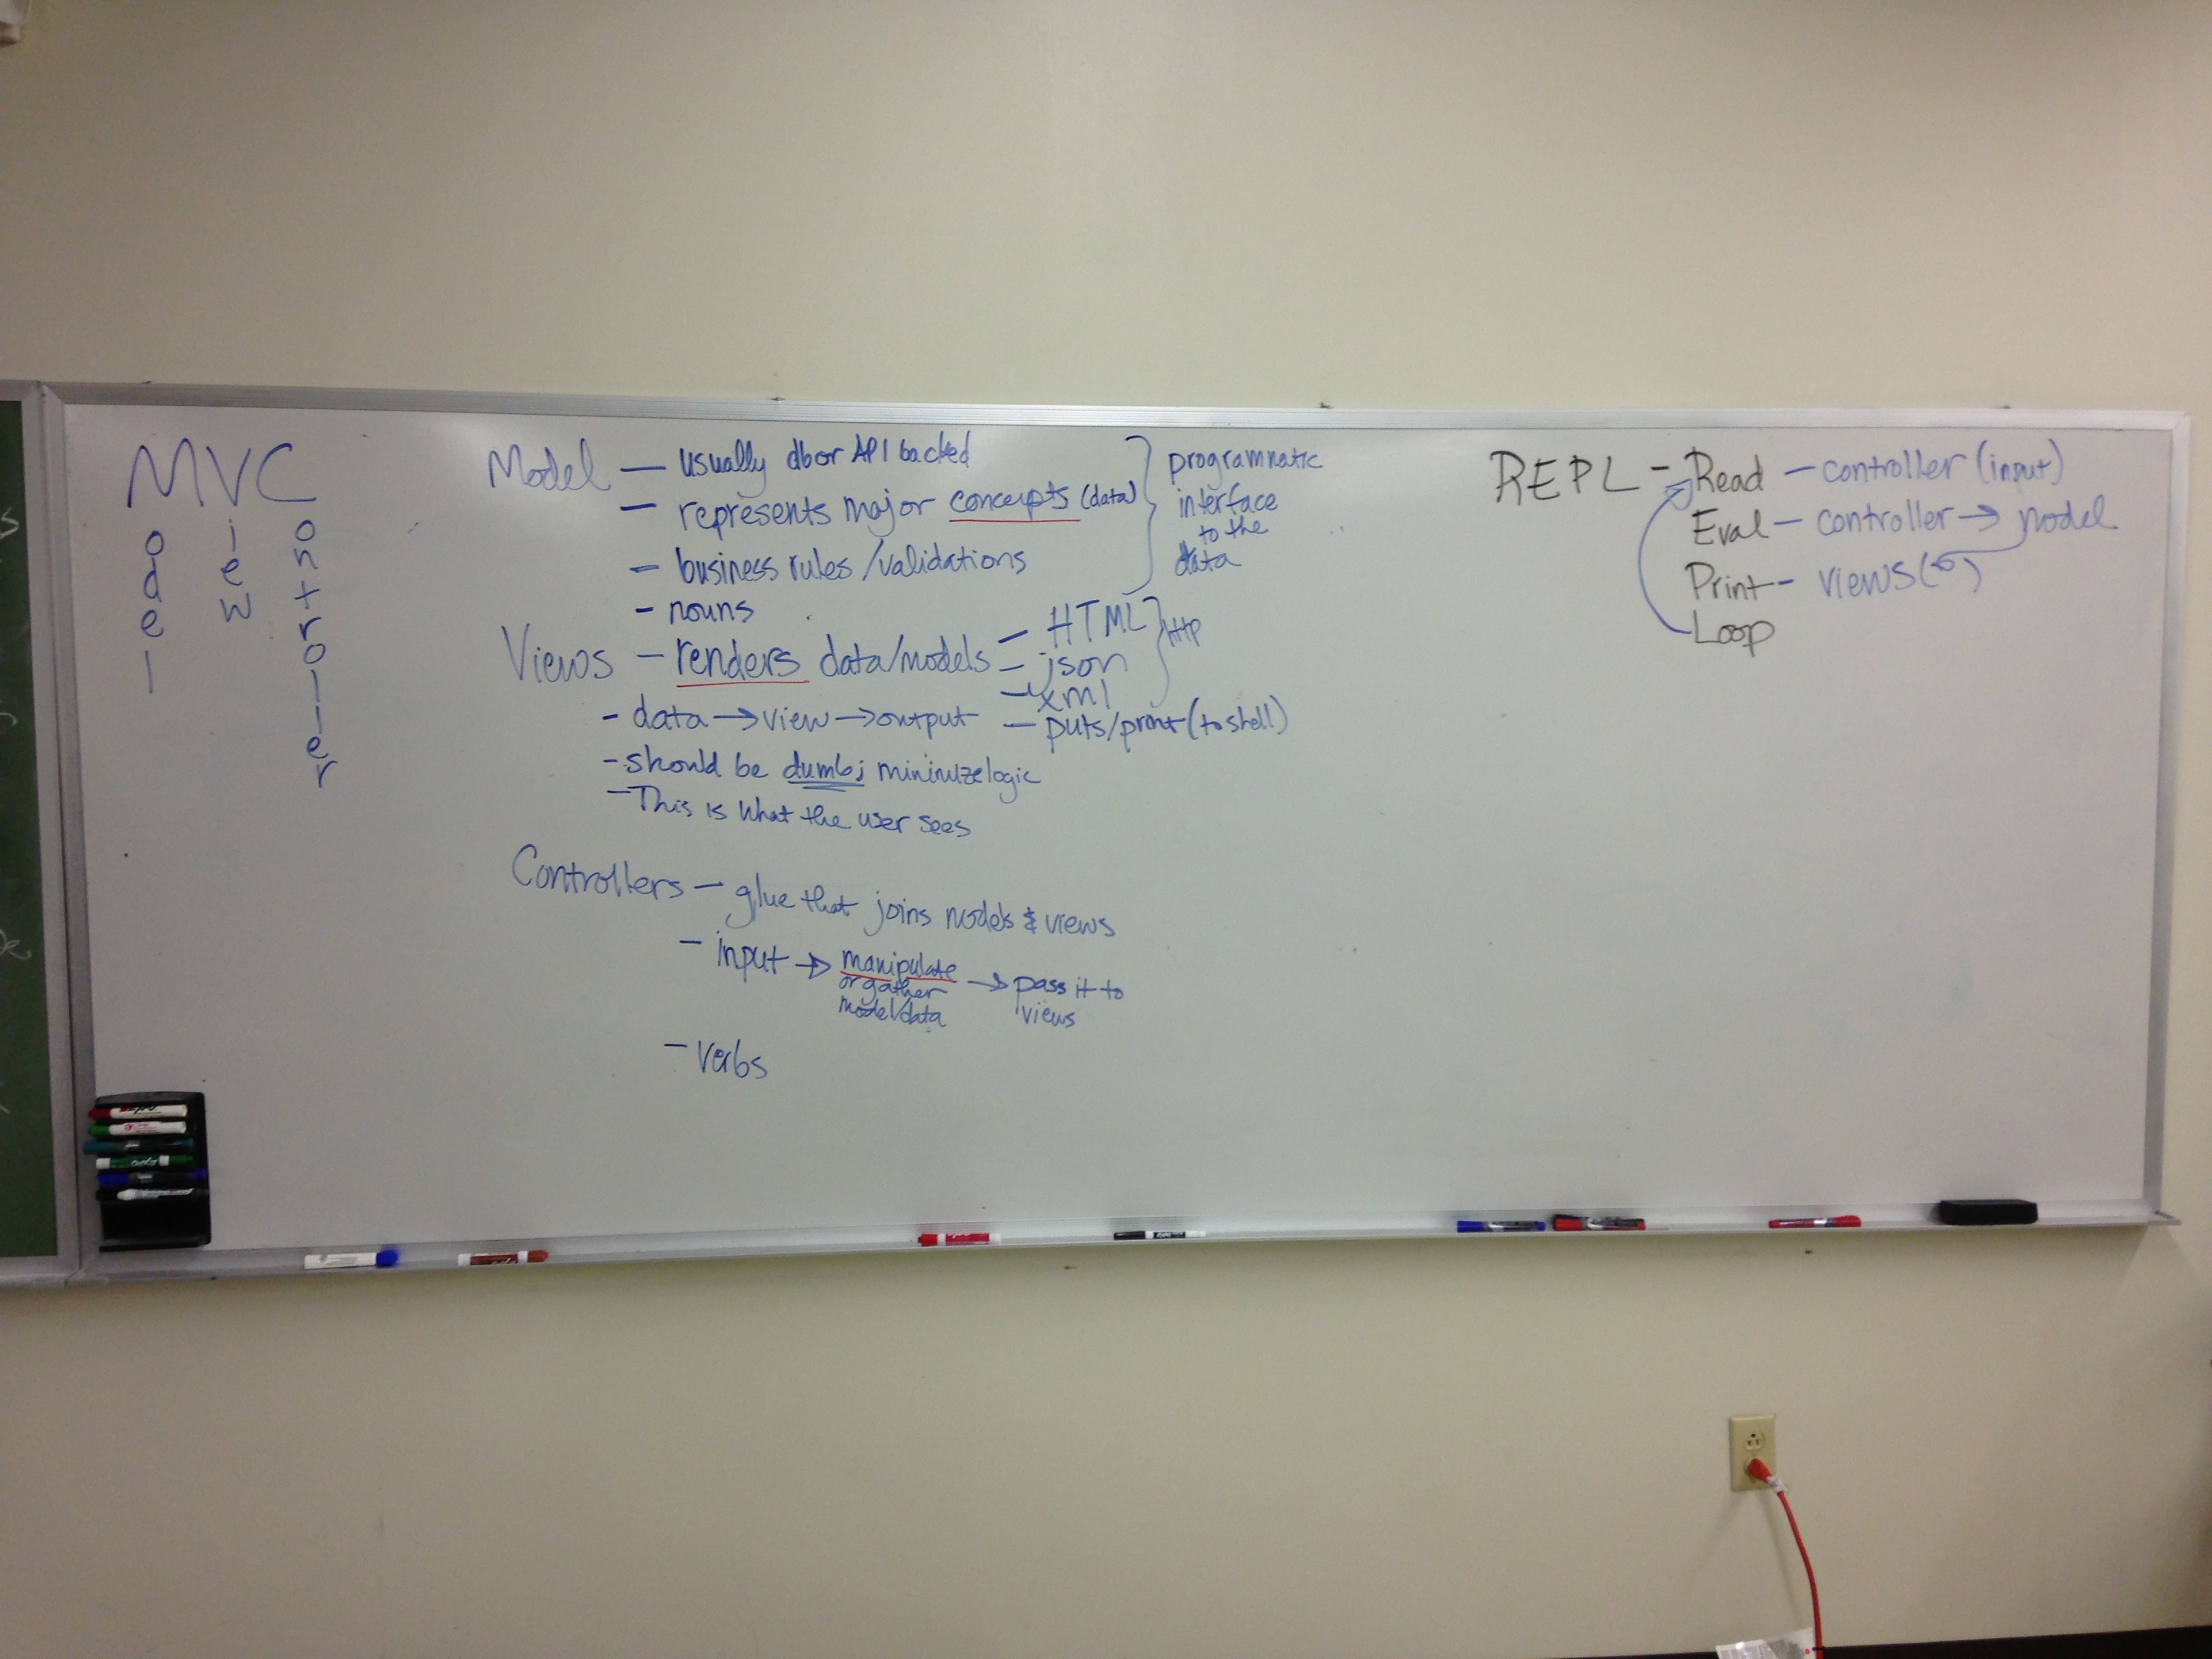 MVC
odel
iew
ontroller
Model — usually db or API backed
— represents major concepts (data)
— business rules/validations
- nouns
programmatic
interface
to the
data
Views — renders data/models — HTML
— json
— xml
http
- data → view → output — puts/print (to shell)
- should be dumb; minimize logic
- This is what the user sees
Controllers — glue that joins models & views
- input → manipulate
or gather
model/data
→ pass it to
views
- verbs
REPL - Read — controller (input)
Eval — controller → model
Print - views( )
Loop